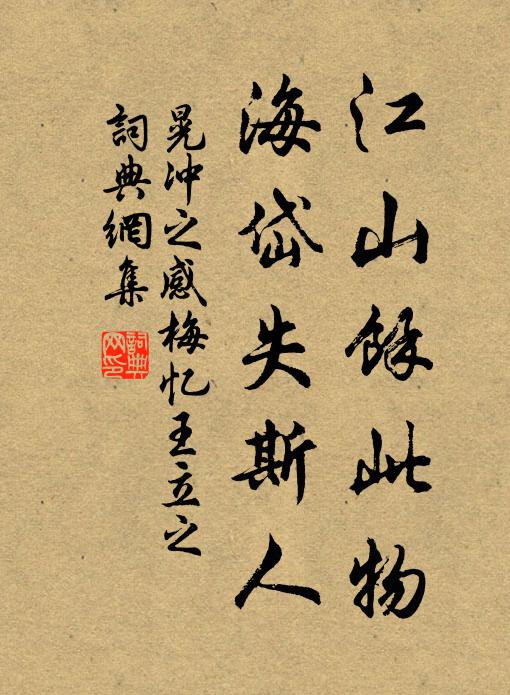 江山餘此物
海岱失斯人
晁冲之感梅忆王立之
詞典網集
詞典網印